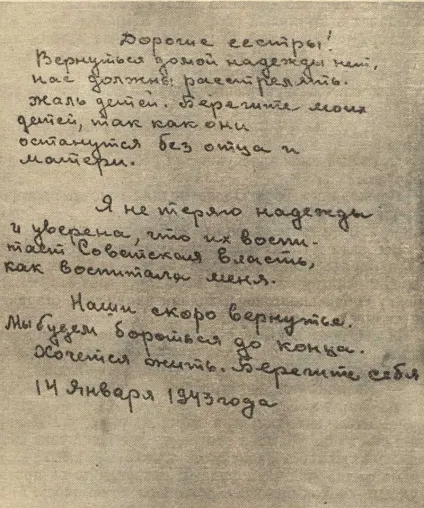 Дорогие сестры!
Вернуться домой надежды нет,
нас должны расстрелять.
Жаль детей. Берегите моих
детей, так как они
останутся без отца и
матери.
Я не теряю надежды
и уверена, что их воспи-
тает Советская власть,
как воспитала меня.
Наши скоро вернутье.
Мы будем бороться до конца.
Хочется жить. Берегите себя
14 Января 1943 года